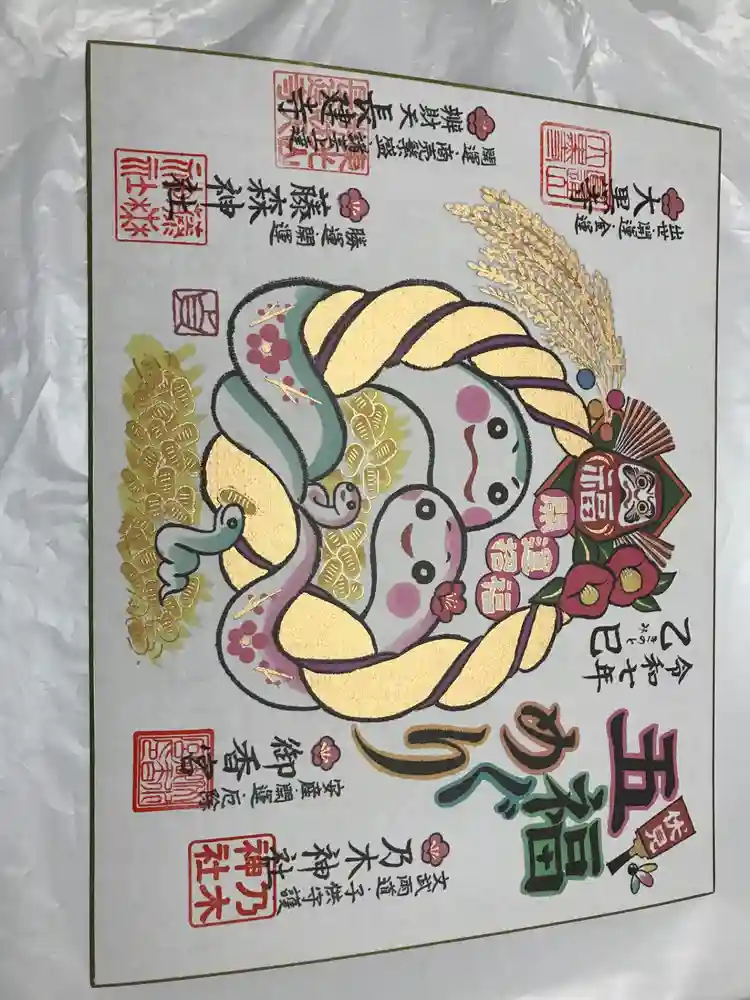 伏見
五福めぐり
令和七年
乙巳
きのとみ
福
開運招福
大黒寺
出世・開運・金運
辨財天長建寺
開運・商売繁盛・諸芸上達
藤森神社
勝運・開運
御香宮
安産・開運・厄除
乃木神社
文武両道・子供守護
乃木神社